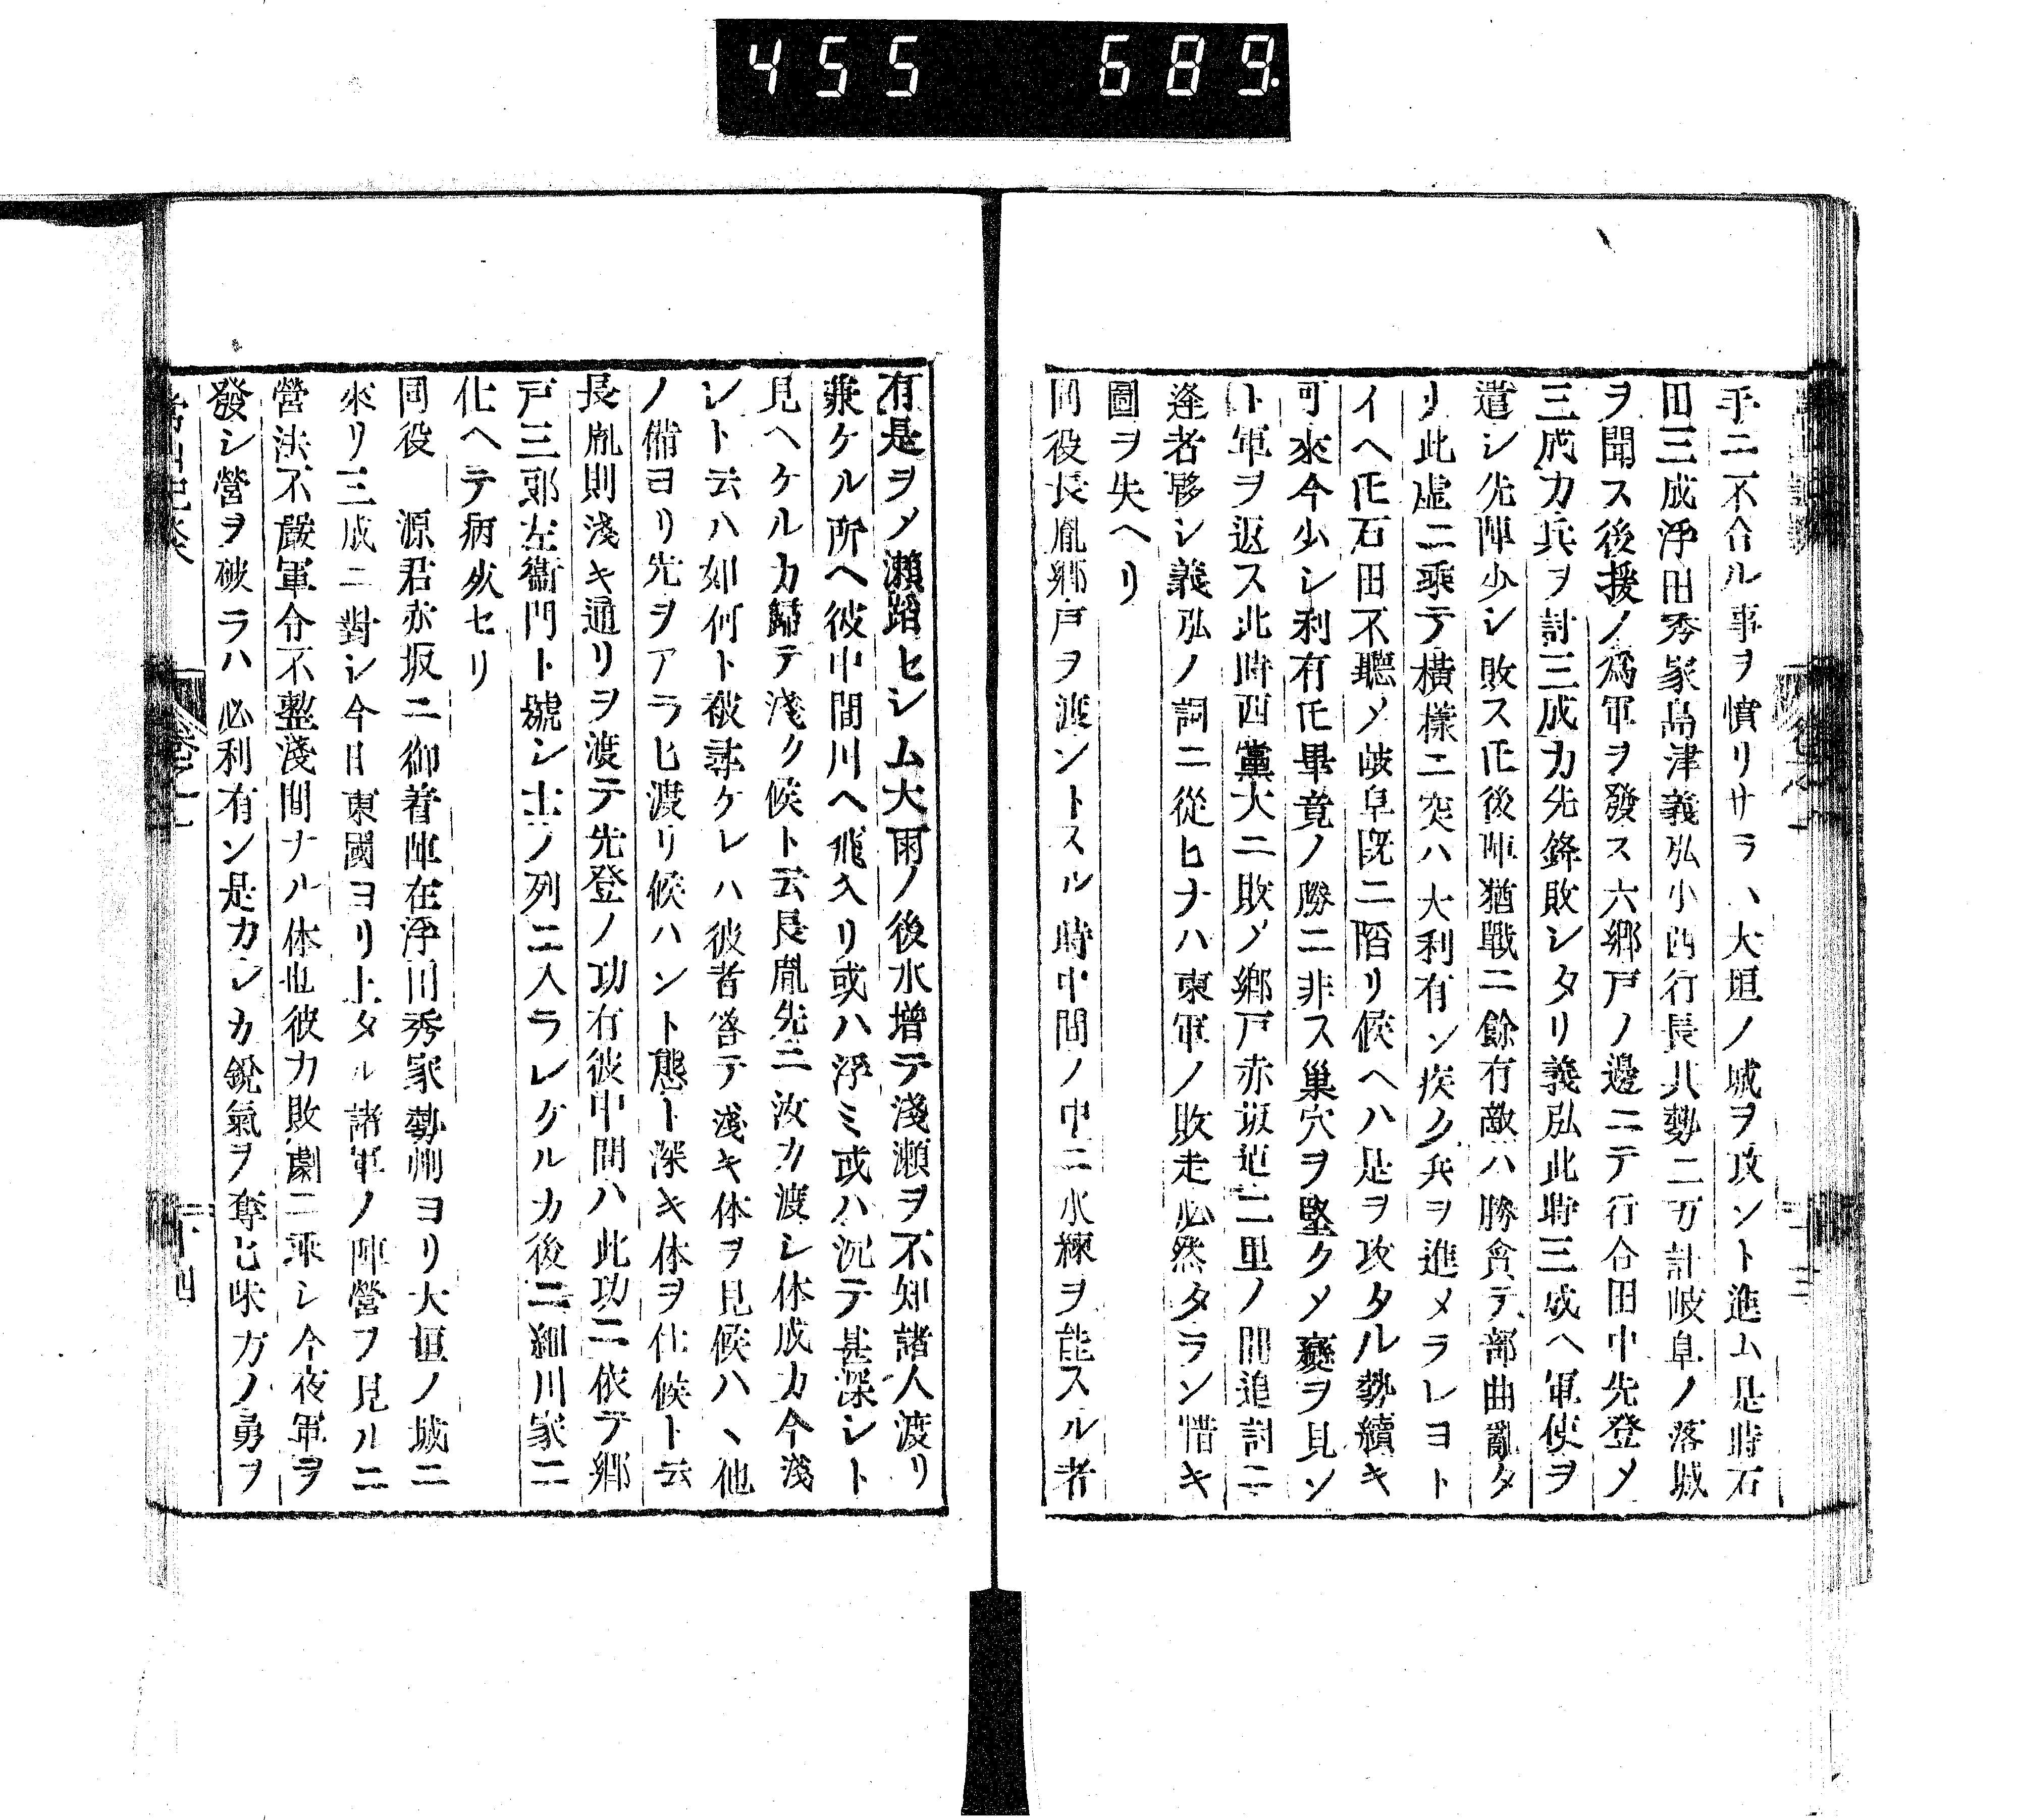 455 689
手ニ不合ル事ヲ憤リサラハ大垣ノ城ヲ攻ント進ム是時石
田三成浮田秀家島津義弘小西行長共勢二万計岐阜ノ落城
ヲ聞ス後援ノ為軍ヲ發ス六郷戸ノ邊ニテ行合田中先登メ
三成カ兵ヲ討三成カ先鋒敗レタリ義弘此時三成ヘ軍使ヲ
遣シ先陣少シ敗ス𪜈後陣猶戰ニ餘有敵ハ勝貪テ部曲亂タ
リ此虚ニ乘テ横樣ニ突ハ大利有ン疾ク兵ヲ進メラレヨト
イヘ𪜈石田不聽メ岐阜既ニ陷リ候ヘハ是ヲ攻タル勢續キ
可來今少シ利有𪜈畢竟ノ勝ニ非ス巢穴ヲ堅クメ變ヲ見ン
ト軍ヲ返ス此時西黨大ニ敗メ郷戸赤坂近二里ノ間追討ニ
逢者夥シ義弘ノ詞ニ從ヒナハ東軍ノ敗走必然タラン惜キ
圖ヲ失ヘリ
同役長胤郷戸ヲ渡ントスル時中間ノ中ニ水練ヲ能スル者
有是ヲメ瀬蹈セシム大雨ノ後水增テ淺瀬ヲ不知諸人渡リ
兼ケル所ヘ彼中間川ヘ飛入リ或ハ浮ミ或ハ沉テ甚深シト
見ヘケルカ歸テ淺ク候ト云長胤先ニ汝カ渡シ体成カ今淺
シト云ハ如何ト被尋ケレハ彼者答テ淺キ体ヲ見候ハヽ他
ノ備ヨリ先ヲアラヒ渡リ候ハント態ト深キ体ヲ仕候ト云
長胤則淺キ通リヲ渡テ先登ノ功有彼中間ハ此功ニ依テ郷
戸三郎左衞門ト號シ士ノ列ニ入ラレケルカ後ニ細川家ニ
仕ヘテ病死セリ
同役　源君赤坂ニ御着陣在浮田秀家勢州ヨリ大垣ノ城ニ
來リ三成ニ對シ今日東國ヨリ上タル諸軍ノ陣營ヲ見ルニ
營法不嚴軍令不整淺間ナル体也彼カ敗劇ニ乘シ今夜軍ヲ
發シ營ヲ破ラハ必利有ン是カレカ銳氣ヲ奪ヒ味方ノ勇ヲ